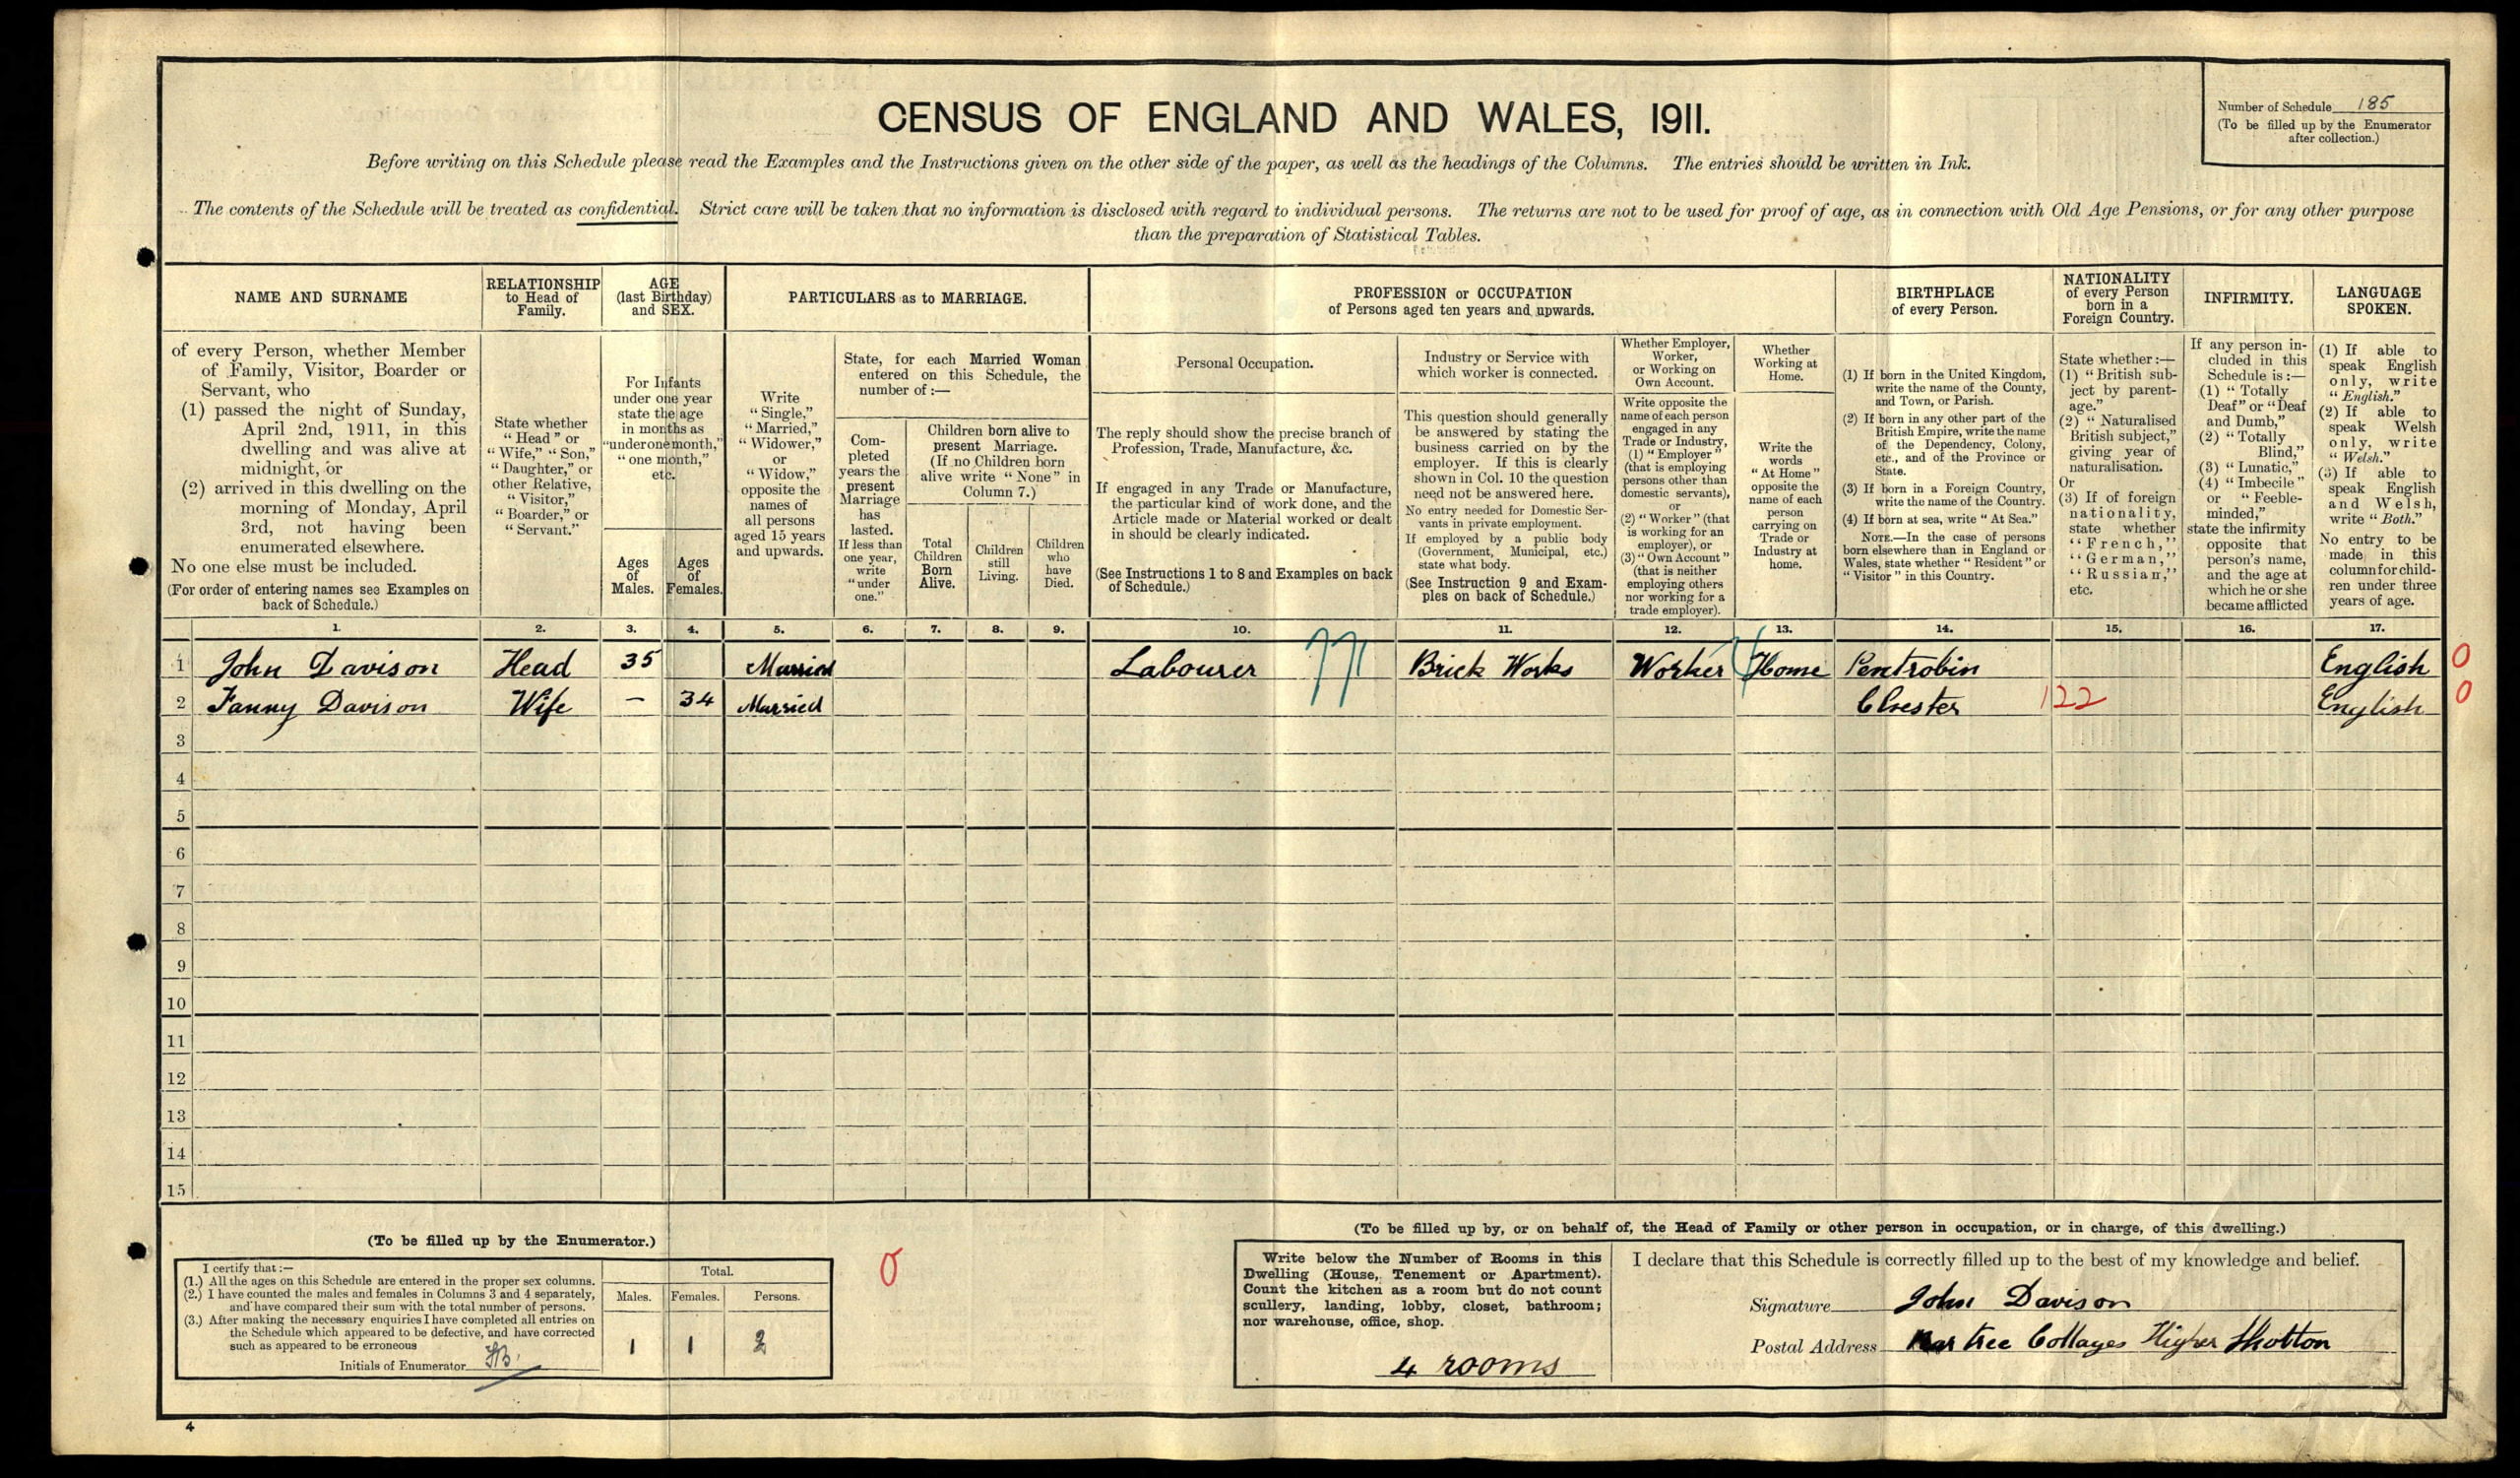 CENSUS OF ENGLAND AND WALES, 1911.
Number of Schedule 185
(To be filled up by the Enumerator
after collection.)
Before writing on this Schedule please read the Examples and the Instructions given on the other side of the paper, as well as the headings of the Columns. The entries should be written in Ink.
The contents of the Schedule will be treated as confidential. Strict care will be taken that no information is disclosed with regard to individual persons. The returns are not to be used for proof of age, as in connection with Old Age Pensions, or for any other purpose
than the preparation of Statistical Tables.
NAME AND SURNAME
of every Person, whether Member
of Family, Visitor, Boarder or
Servant, who
(1) passed the night of Sunday,
April 2nd, 1911, in this
dwelling and was alive at
midnight, or
(2) arrived in this dwelling on the
morning of Monday, April
3rd, not having been
enumerated elsewhere.
No one else must be included.
(For order of entering names see Examples on
back of Schedule.)
RELATIONSHIP
to Head of
Family.
State whether
"Head" or
"Wife," "Son,"
"Daughter," or
other Relative,
"Visitor,"
"Boarder," or
"Servant."
AGE
(last Birthday)
and SEX.
For Infants
under one year
state the age
in months as
"under one month,"
"one month,"
etc.
Ages
of
Males.
Ages
of
Females.
PARTICULARS as to MARRIAGE.
Write
"Single,"
"Married,"
"Widower,"
or
"Widow,"
opposite the
names of
all persons
aged 15 years
and upwards.
State, for each Married Woman
entered on this Schedule, the
number of :—
Com-
pleted
years the
present
Marriage
has
lasted.
If less than
one year,
write
"under
one."
Children born alive to
present Marriage.
(If no Children born
alive write "None" in
Column 7.)
Total
Children
Born
Alive.
Children
still
Living.
Children
who
have
Died.
PROFESSION or OCCUPATION
of Persons aged ten years and upwards.
Personal Occupation.
The reply should show the precise branch of
Profession, Trade, Manufacture, &c.
If engaged in any Trade or Manufacture,
the particular kind of work done, and the
Article made or Material worked or dealt
in should be clearly indicated.
(See Instructions 1 to 8 and Examples on back
of Schedule.)
Industry or Service with
which worker is connected.
This question should generally
be answered by stating the
business carried on by the
employer. If this is clearly
shown in Col. 10 the question
need not be answered here.
No entry needed for Domestic Ser-
vants in private employment.
If employed by a public body
(Government, Municipal, etc.)
state what body.
(See Instruction 9 and Exam-
ples on back of Schedule.)
Whether Employer,
Worker,
or Working on
Own Account.
Write opposite the
name of each person
engaged in any
Trade or Industry,
(1) "Employer"
(that is employing
persons other than
domestic servants),
or
(2) "Worker" (that
is working for an
employer), or
(3) "Own Account"
(that is neither
employing others
nor working for a
trade employer).
Whether
Working at
Home.
Write the
words
"At Home"
opposite the
name of each
person
carrying on
Trade or
Industry at
home.
BIRTHPLACE
of every Person.
(1) If born in the United Kingdom,
write the name of the County,
and Town, or Parish.
(2) If born in any other part of the
British Empire, write the name
of the Dependency, Colony,
etc., and of the Province or
State.
(3) If born in a Foreign Country,
write the name of the Country.
(4) If born at sea, write "At Sea."
NOTE.—In the case of persons
born elsewhere than in England or
Wales, state whether "Resident" or
"Visitor" in this Country.
NATIONALITY
of every Person
born in a
Foreign Country.
State whether :—
(1) "British sub-
ject by parent-
age."
(2) "Naturalised
British subject,"
giving year of
naturalisation.
Or
(3) If of foreign
nationality,
state whether
"French,"
"German,"
"Russian,"
etc.
INFIRMITY.
If any person in-
cluded in this
Schedule is :—
(1) "Totally
Deaf" or "Deaf
and Dumb,"
(2) "Totally
Blind,"
(3) "Lunatic,"
(4) "Imbecile"
or "Feeble-
minded,"
state the infirmity
opposite that
person's name,
and the age at
which he or she
became afflicted
LANGUAGE
SPOKEN.
(1) If able to
speak English
only, write
"English."
(2) If able to
speak Welsh
only, write
"Welsh."
(3) If able to
speak English
and Welsh,
write "Both."
No entry to be
made in this
column for child-
ren under three
years of age.
1. 2. 3. 4. 5. 6. 7. 8. 9. 10. 11. 12. 13. 14. 15. 16. 17.
1 John Davison Head 35 Married Labourer 771 Brick Works Worker Home Pentrobin English 0
2 Fanny Davison Wife – 34 Married Chester 122 English 0
3
4
5
6
7
8
9
10
11
12
13
14
15
(To be filled up by the Enumerator.)
I certify that :—
(1.) All the ages on this Schedule are entered in the proper sex columns.
(2.) I have counted the males and females in Columns 3 and 4 separately,
and have compared their sum with the total number of persons.
(3.) After making the necessary enquiries I have completed all entries on
the Schedule which appeared to be defective, and have corrected
such as appeared to be erroneous
Initials of Enumerator
Total.
Males. Females. Persons.
1 1 2
0
(To be filled up by, or on behalf of, the Head of Family or other person in occupation, or in charge, of this dwelling.)
Write below the Number of Rooms in this
Dwelling (House, Tenement or Apartment).
Count the kitchen as a room but do not count
scullery, landing, lobby, closet, bathroom;
nor warehouse, office, shop.
4 rooms
I declare that this Schedule is correctly filled up to the best of my knowledge and belief.
Signature John Davison
Postal Address tree Cottages Higher Shotton
4